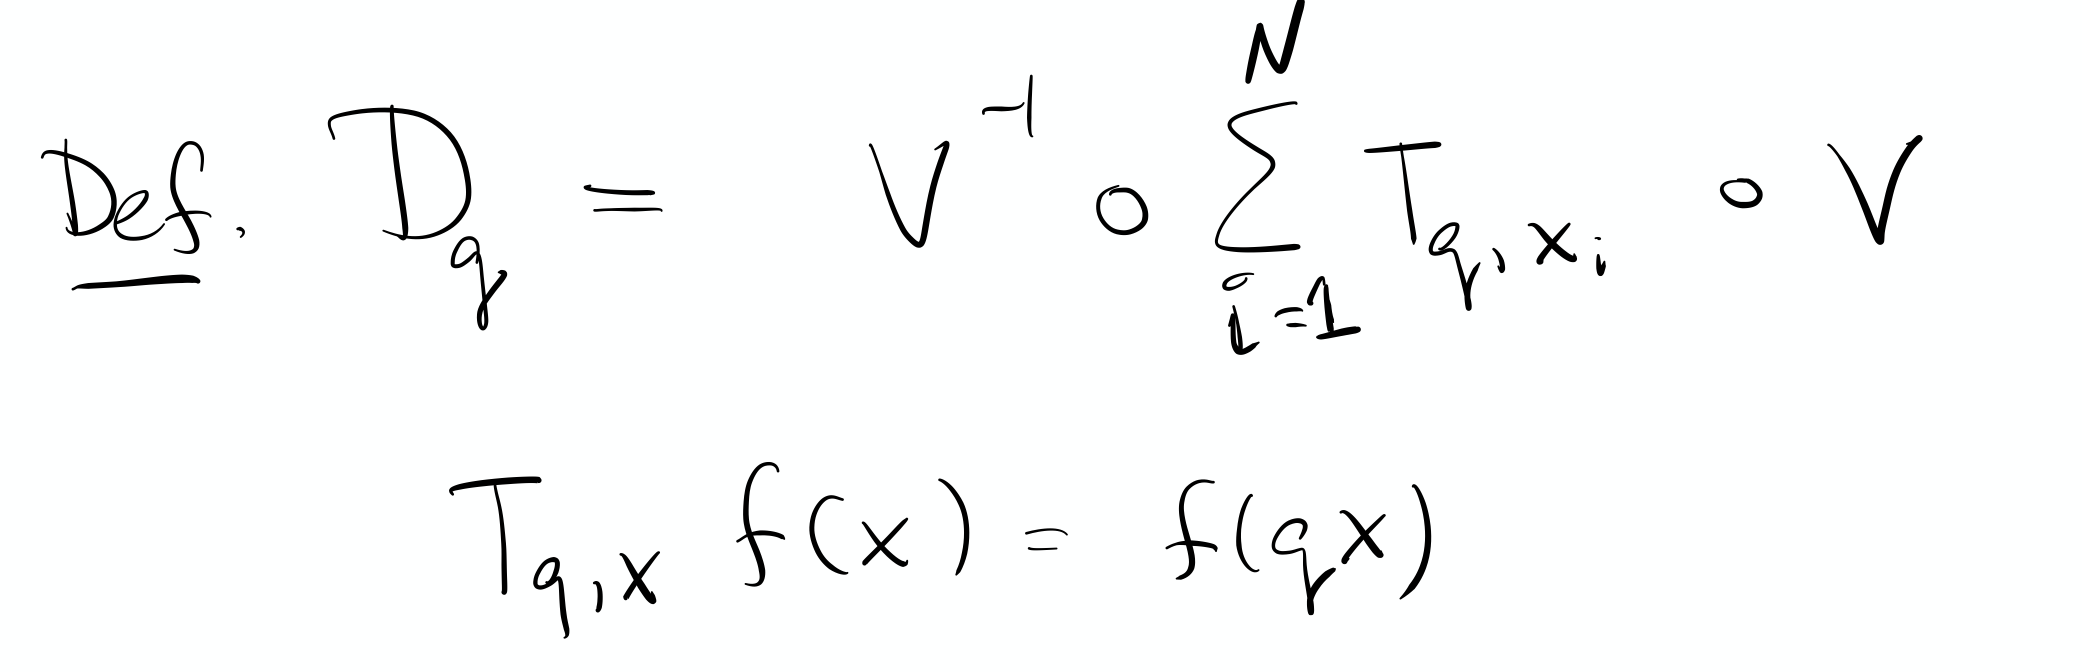 Def. D_q = V^{-1} ∘ \sum_{i=1}^{N} T_{q,x_i} ∘ V
T_{q,x} f(x) = f(qx)